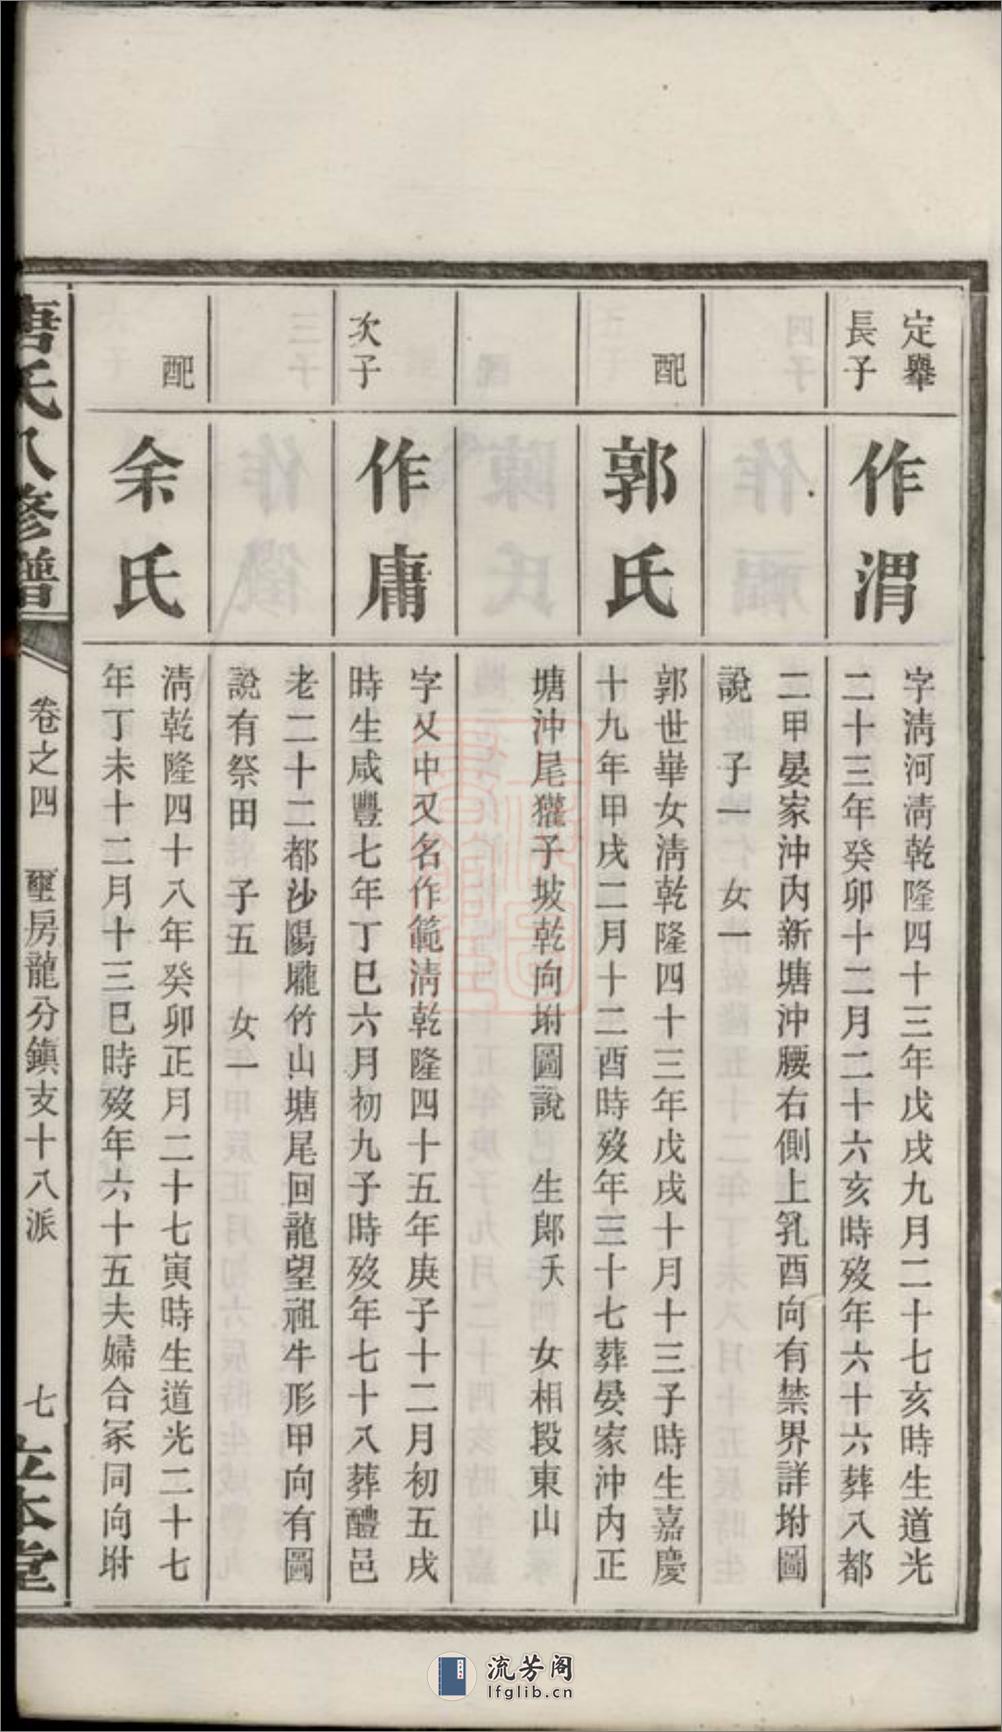 定舉
長子
作渭
字淸河淸乾隆四十三年戊戌九月二十七亥時生道光
二十三年癸卯十二月二十六亥時歿年六十六葬八都
二甲晏家沖內新塘沖腰右側上乳酉向有禁界詳坿圖
說　子一　女一
配
郭氏
郭世畢女淸乾隆四十三年戊戌十月十三子時生嘉慶
十九年甲戌二月十二酉時歿年三十七葬晏家沖內正
塘沖尾獾子坡乾向坿圖說　生郎夭　女相段東山
次子
作庸
字乂中又名作範淸乾隆四十五年庚子十二月初五戌
時生咸豐七年丁巳六月初九子時歿年七十八葬醴邑
老二十二都沙陽壠竹山塘尾回龍望祖牛形甲向有圖
說有祭田　子五　女一
配
余氏
淸乾隆四十八年癸卯正月二十七寅時生道光二十七
年丁未十二月十三巳時歿年六十五夫婦合冢同向坿
唐氏八修譜
卷之四　璽房龍分鎮支十八派
七
立本堂
流芳阁
lfglib.cn